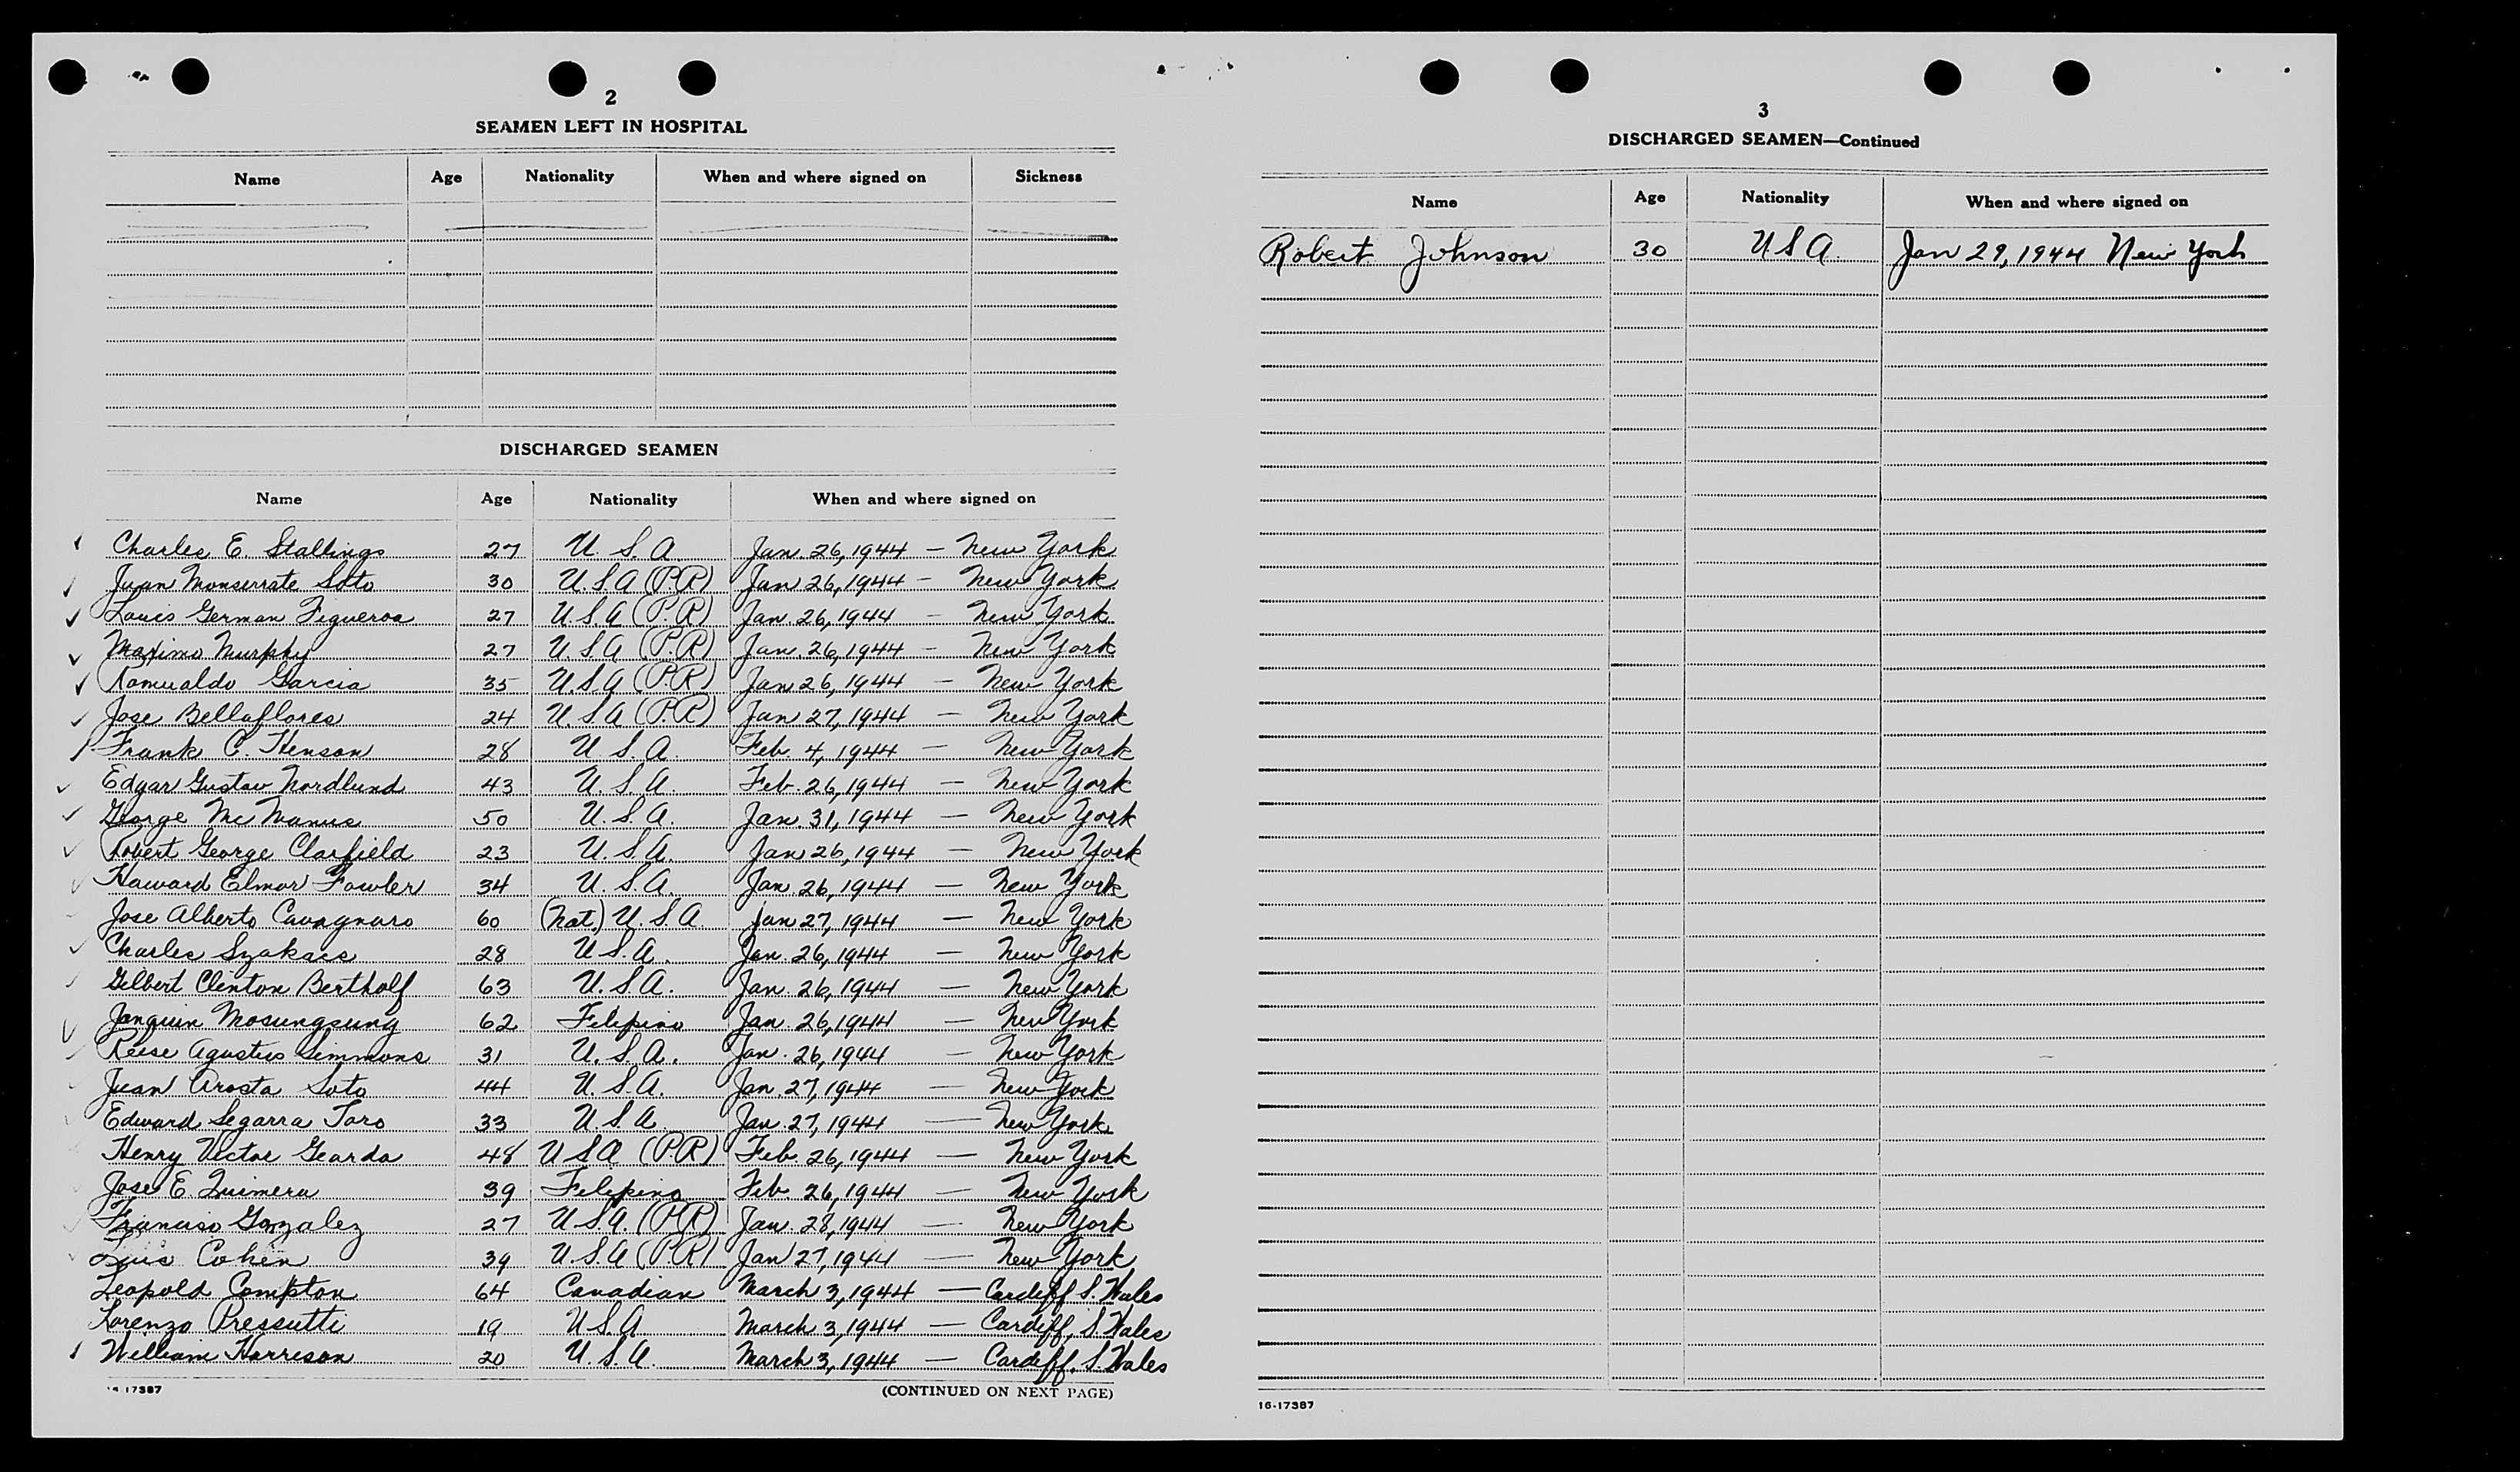 2
SEAMEN LEFT IN HOSPITAL
Name Age Nationality When and where signed on Sickness
DISCHARGED SEAMEN
Name Age Nationality When and where signed on
Charles E. Stallings 27 U. S. A Jan. 26, 1944 — New York
Juan Monserrate Soto 30 U.S.A (P.R) Jan 26, 1944 — New York
Louis German Figueroa 27 U.S.A (P.R) Jan. 26, 1944 — New York
Maximo Murphy 27 U.S.A (P.R) Jan. 26, 1944 — New York
Romualdo Garcia 35 U.S.A (P.R) Jan 26, 1944 — New York
Jose Bellaflores 24 U.S.A (P.R) Jan 27, 1944 — New York
Frank C. Henson 28 U.S.A. Feb. 4, 1944 — New York
Edgar Gustav Nordlund 43 U.S.A. Feb. 26, 1944 — New York
George McManus 50 U.S.A. Jan. 31, 1944 — New York
Robert George Clarfield 23 U.S.A. Jan 26, 1944 — New York
Haward Elmor Fowler 34 U.S.A. Jan. 26, 1944 — New York
Jose Alberto Cavagnaro 60 (Nat.) U.S.A. Jan 27, 1944 — New York
Charles Szakacs 28 U.S.A. Jan. 26, 1944 — New York
Gilbert Clinton Bertholf 63 U.S.A. Jan. 26, 1944 — New York
Mosungsung 62 Filipino Jan. 26, 1944 — New York
Reese Agustus Simmons 31 U.S.A. Jan. 26, 1944 — New York
Juan Arosta Soto 44 U.S.A. Jan. 27, 1944 — New York
Edward Segarra Toro 33 U.S.A. Jan. 27, 1944 — New York
Henry Victor Gearda 48 U.S.A (P.R) Feb. 26, 1944 — New York
Jose E. Quimera 39 Filipino Feb 26, 1944 — New York
Gonzalez 27 U.S.A. (P.R) Jan. 28, 1944 — New York
Luis Cohen 39 U.S.A (P.R) Jan 27, 1944 — New York
Leopold Compton 64 Canadian March 3, 1944 — Cardiff S. Wales
Lorenzo Pressutti 19 U.S.A March 3, 1944 — Cardiff, S. Wales
William Harrison 20 U.S.A. March 3, 1944 — Cardiff, S. Wales
16-17387
(CONTINUED ON NEXT PAGE)
3
DISCHARGED SEAMEN—Continued
Name Age Nationality When and where signed on
Robert Johnson 30 U.S.A. Jan 29, 1944 New York
16-17387